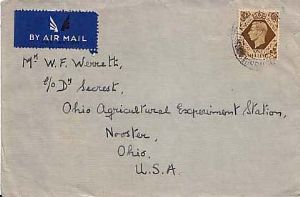 BY AIR MAIL
Mr W. F. Werrett,
c/o Dr Secrest,
Ohio Agricultural Experiment Station,
Wooster,
Ohio,
U.S.A.